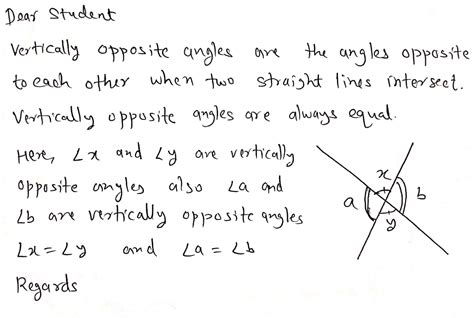 Dear Student
Vertically opposite angles are the angles opposite
to each other when two straight lines intersect.
Vertically opposite angles are always equal.
Here, ∠x and ∠y are vertically
opposite angles also ∠a and
∠b are vertically opposite angles
∠x = ∠y and ∠a = ∠b
Regards
x
a
b
y